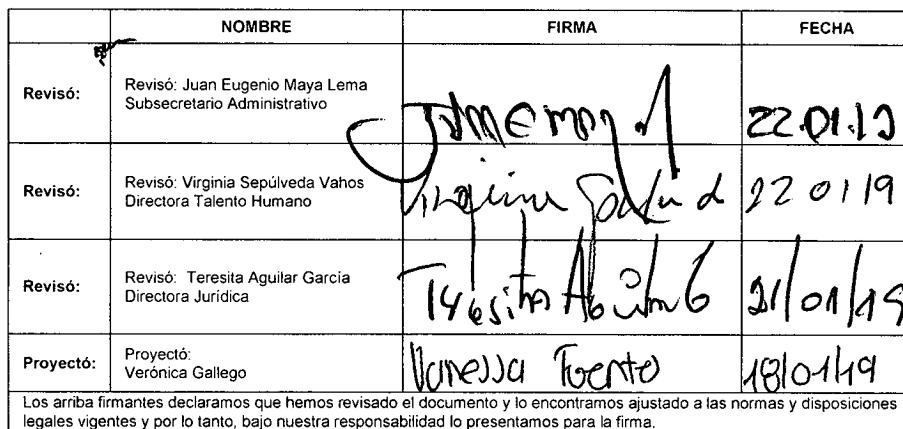 NOMBRE FIRMA FECHA
Revisó: Revisó: Juan Eugenio Maya Lema
Subsecretario Administrativo
22.01.19
Revisó: Revisó: Virginia Sepúlveda Vahos
Directora Talento Humano
Virginia 22 01 19
Revisó: Revisó: Teresita Aguilar García
Directora Jurídica
Teresita 21/01/19
Proyectó: Proyectó:
Verónica Gallego
Vanessa 18/01/19
Los arriba firmantes declaramos que hemos revisado el documento y lo encontramos ajustado a las normas y disposiciones
legales vigentes y por lo tanto, bajo nuestra responsabilidad lo presentamos para la firma.